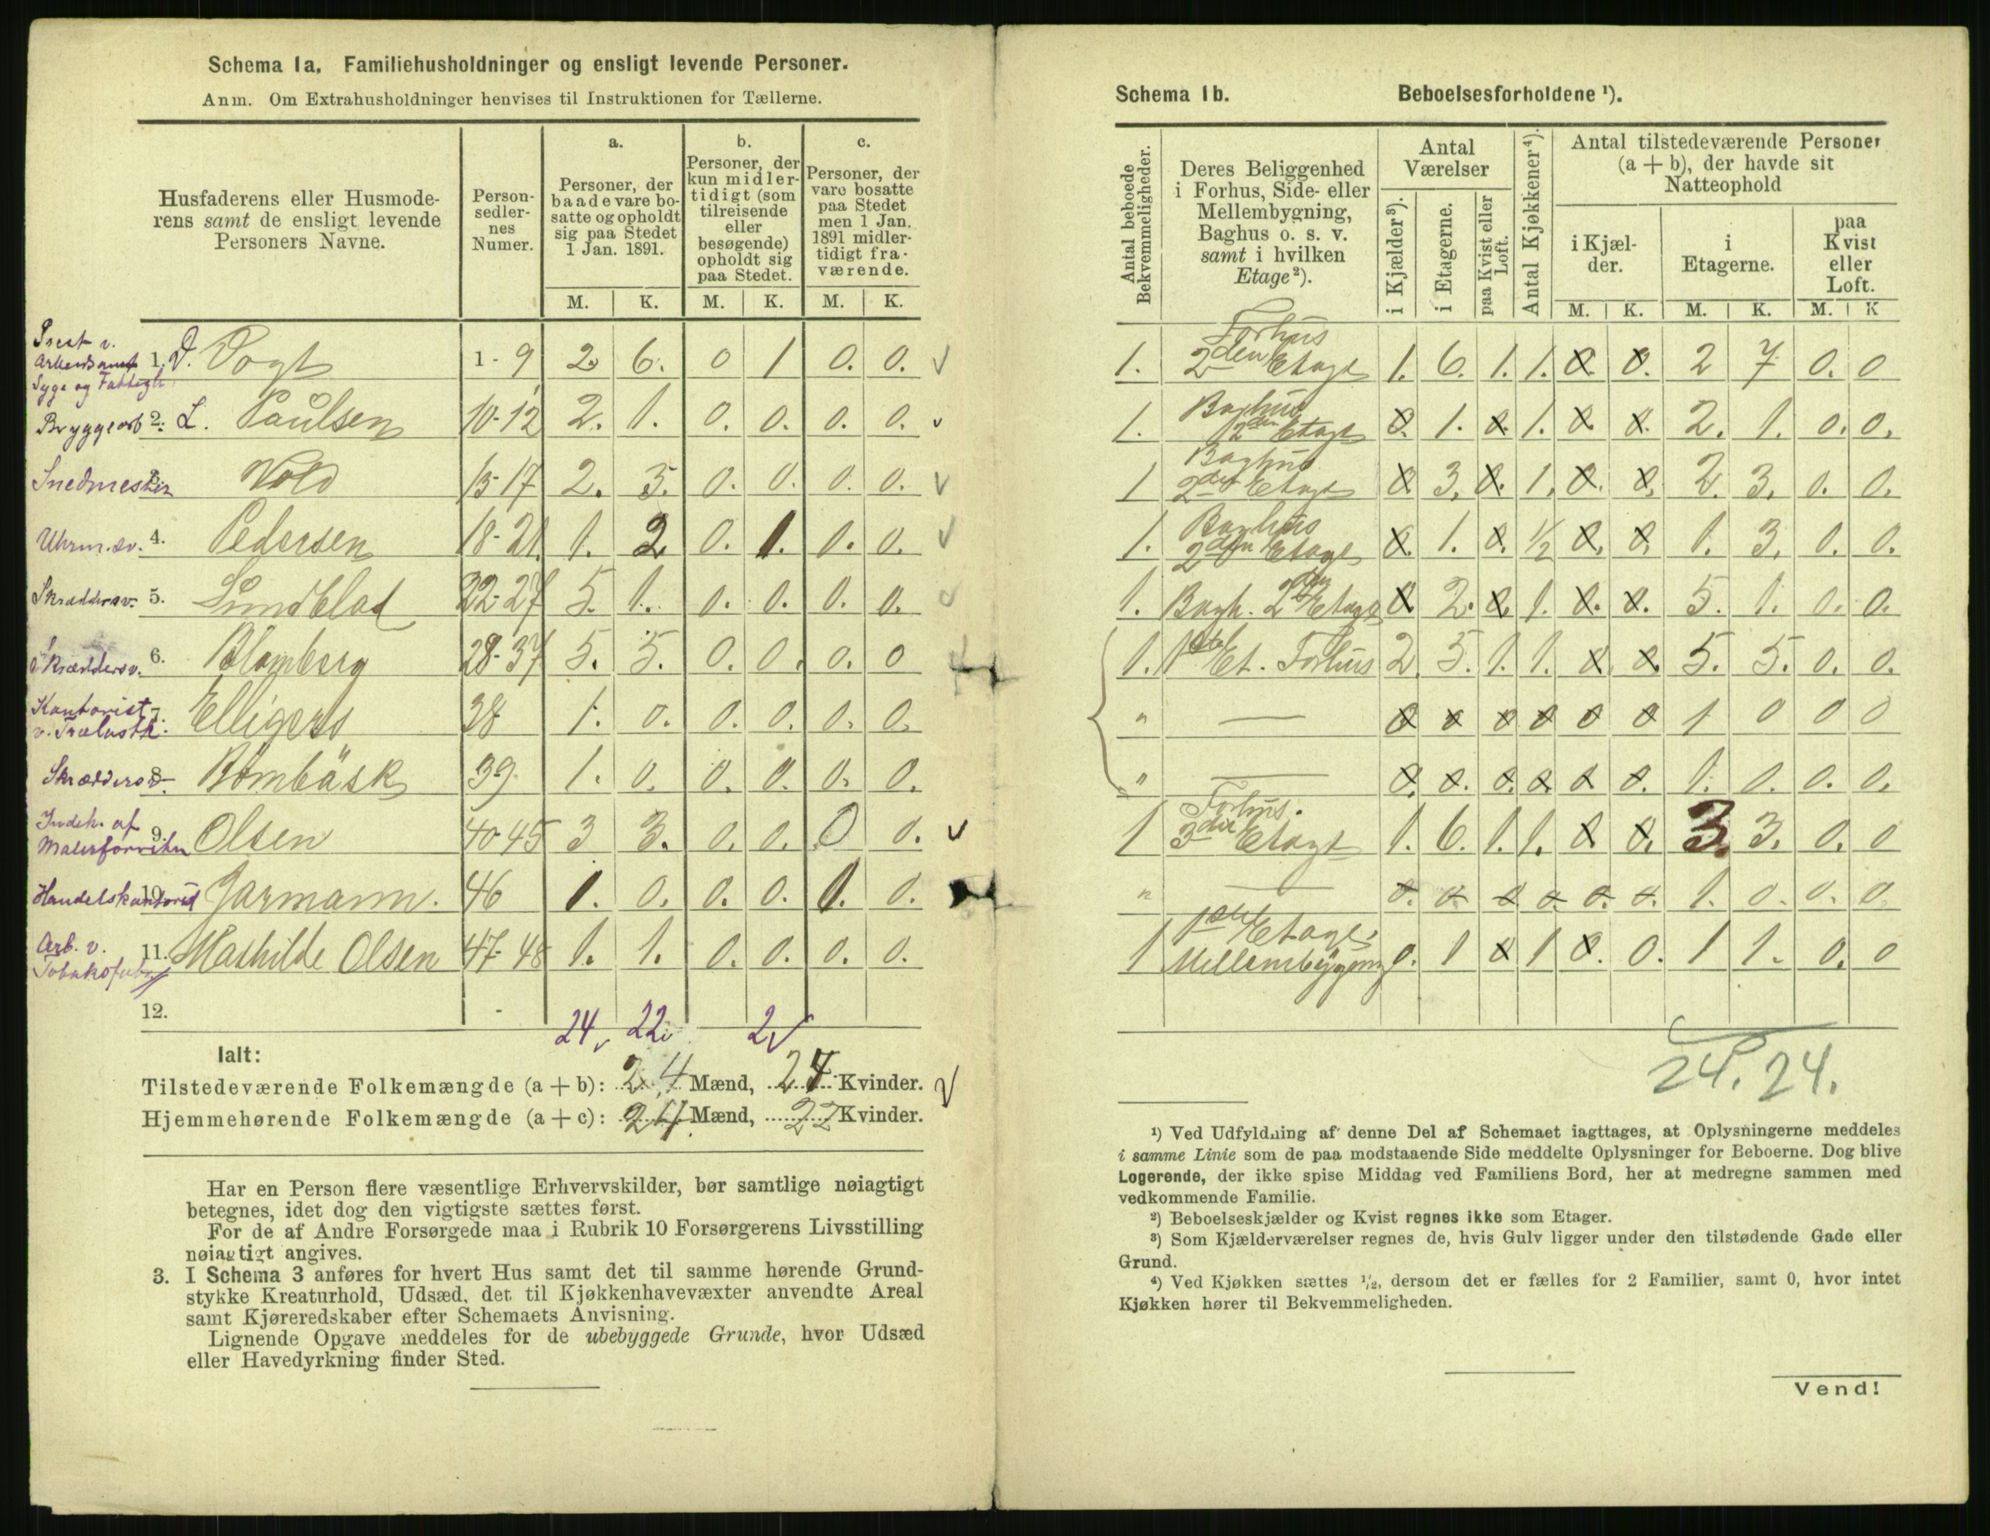 Schema 1a. Familiehusholdninger og ensligt levende Personer.
Anm. Om Extrahusholdninger henvises til Instruktionen for Tællerne.
Husfaderens eller Husmoderens samt de ensligt levende Personers Navne.
Person-sedlernes Numer.
a. Personer, der baade vare bosatte og opholdt sig paa Stedet 1 Jan. 1891.
b. Personer, der kun midlertidigt (som tilreisende eller besøgende) opholdt sig paa Stedet.
c. Personer, der vare bosatte paa Stedet men 1 Jan. 1891 midlertidigt fraværende.
M. K. M. K. M. K.
Prest v. Arbeidsanst Syge og Fattigh. 1. D. Vogt 1-9 2. 6. 0 1 0. 0.
Bryggearb 2. L. Paulsen 10-12 2. 1. 0. 0. 0. 0.
Snedmester Vold 13-17 2. 3. 0. 0. 0. 0.
Uhrm.sv. 4. Pedersen 18-21 1. 2 0. 1. 0. 0.
Skræddersv. 5. Lundblad 22-27 5. 1. 0. 0. 0. 0.
Skræddersv. 6. Blomberg 28-37 5. 5. 0. 0. 0. 0
Kontorist v. Trælasth. 7. Elligers 38 1. 0. 0. 0. 0. 0.
Skræddersv. 8. Bombäsk 39 1. 0. 0. 0. 0. 0.
Indeh. af Malerforretn 9. Olsen 40-45 3 3. 0. 0. 0 0.
Handelskontorist 10. Jarmann. 46 1. 0. 0. 0. 0. 0.
Arb. v. Tobaksfabr. 11. Mathilde Olsen 47-48 1. 1. 0. 0. 0. 0.
12.
24 22 2
Ialt:
Tilstedeværende Folkemængde (a + b): 24 Mænd, 24 Kvinder.
Hjemmehørende Folkemængde (a + c): 24 Mænd, 22 Kvinder.
Har en Person flere væsentlige Erhvervskilder, bør samtlige nøiagtigt
betegnes, idet dog den vigtigste sættes først.
For de af Andre Forsørgede maa i Rubrik 10 Forsørgerens Livsstilling
nøiagtigt angives.
3. I Schema 3 anføres for hvert Hus samt det til samme hørende Grund-
stykke Kreaturhold, Udsæd, det til Kjøkkenhavevæxter anvendte Areal
samt Kjøreredskaber efter Schemaets Anvisning.
Lignende Opgave meddeles for de ubebyggede Grunde, hvor Udsæd
eller Havedyrkning finder Sted.
Schema 1b. Beboelsesforholdene ¹).
Antal beboede Bekvemmeligheder.
Deres Beliggenhed i Forhus, Side- eller Mellembygning, Baghus o. s. v. samt i hvilken Etage ²).
Antal Værelser
i Kjælder ³).
i Etagerne.
paa Kvist eller Loft.
Antal Kjøkkener ⁴).
Antal tilstedeværende Personer (a + b), der havde sit Natteophold
i Kjælder.
i Etagerne.
paa Kvist eller Loft.
M. K. M. K. M. K
1. Forhus 2den Etage 1. 6. 1. 1. 0. 0. 2 7 0. 0
1. Baghus 2den Etage 0. 1. 0. 1. 0. 0. 2. 1. 0. 0.
1 Baghus 2den Etage 0. 3. 0. 1. 0. 0. 2. 3. 0. 0.
1. Baghus 2den Etage 0. 1. 0. ½ 0. 0. 1. 3. 0. 0.
1. Bagh. 2den Etage 0. 2. 0. 1. 0. 0. 5. 1. 0. 0.
1. 1ste Et. Forhus 2. 5. 1. 1. 0 0. 5. 5. 0. 0.
" — 0 0 0 0 0 0 1 0 0 0
" — 0. 0. 0. 0. 0. 0. 1. 0. 0. 0.
1 Forhus. 3die Etage 1. 6. 1. 1. 0 0. 3. 3. 0. 0
" — 0. 0. 0 0. 0. 0. 1. 0. 0. 0
1 1ste Etage Mellembygning 0. 1 0 1 0. 0. 1 1. 0. 0
24. 24.
¹) Ved Udfyldning af denne Del af Schemaet iagttages, at Oplysningerne meddeles
i samme Linie som de paa modstaaende Side meddelte Oplysninger for Beboerne. Dog blive
Logerende, der ikke spise Middag ved Familiens Bord, her at medregne sammen med
vedkommende Familie.
²) Beboelseskjælder og Kvist regnes ikke som Etager.
³) Som Kjælderværelser regnes de, hvis Gulv ligger under den tilstødende Gade eller
Grund.
⁴) Ved Kjøkken sættes ½, dersom det er fælles for 2 Familier, samt 0, hvor intet
Kjøkken hører til Bekvemmeligheden.
Vend!